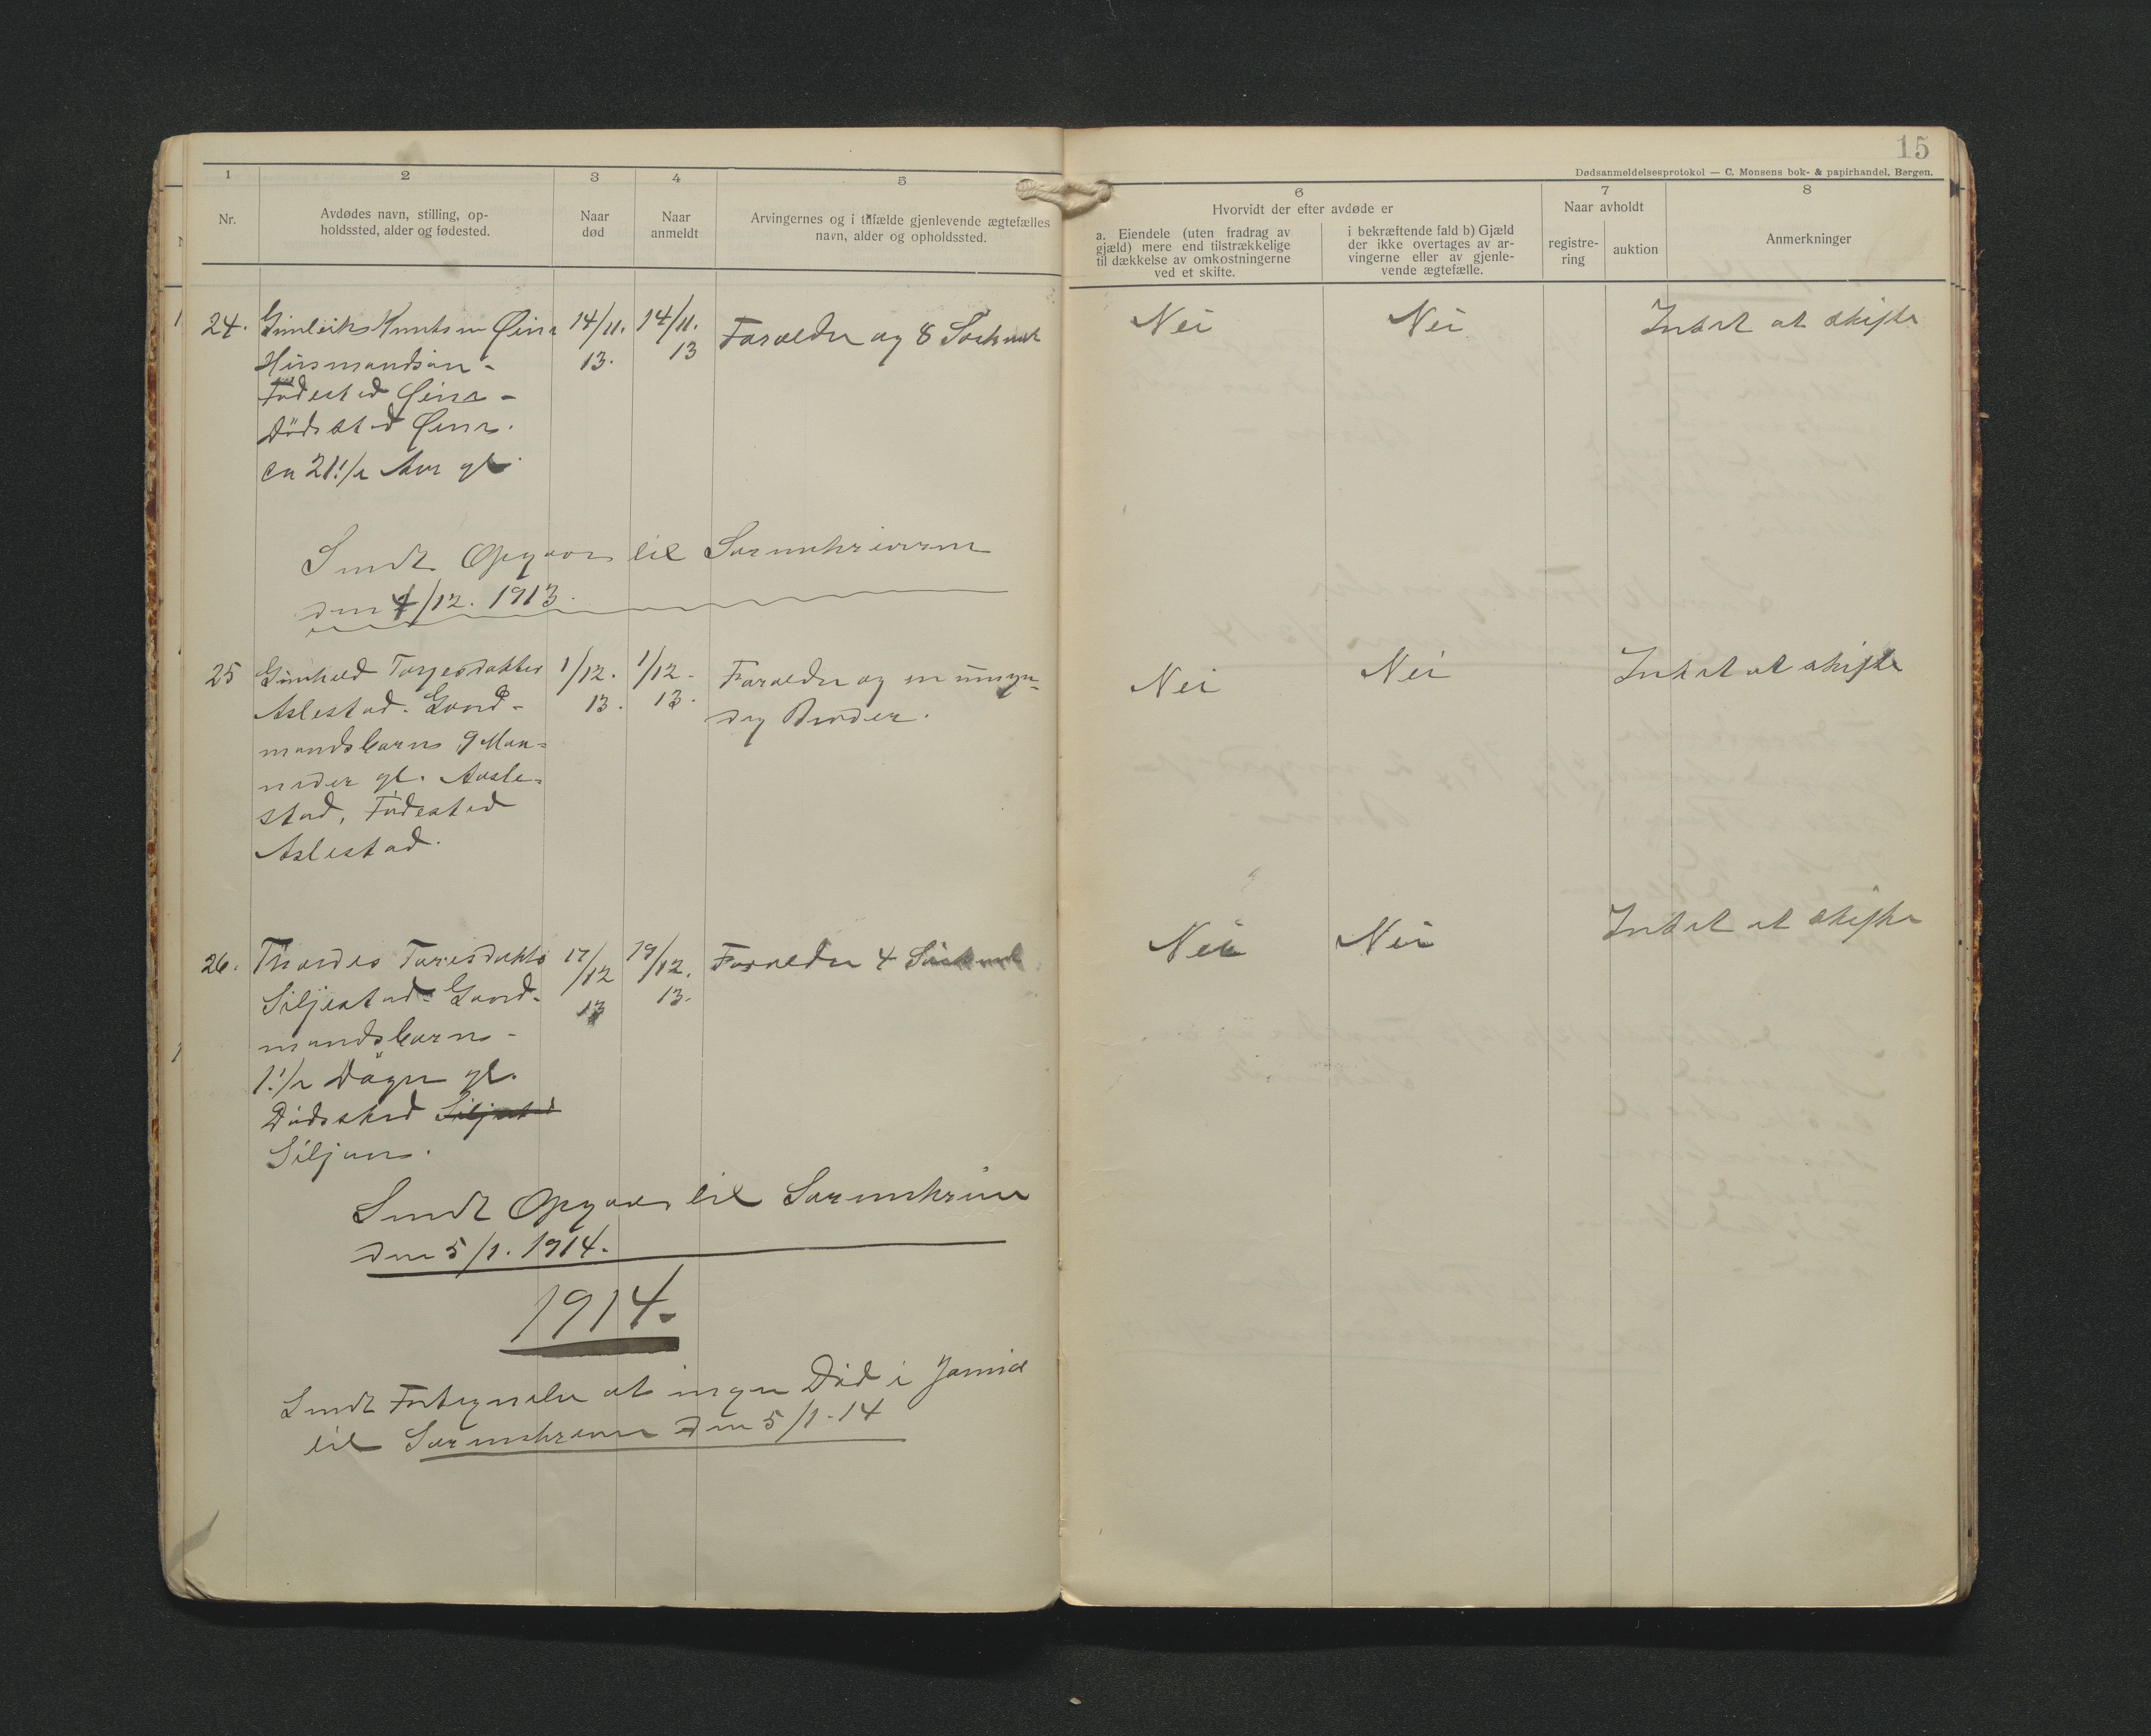 15
Dødsanmeldelsesprotokol — C. Monsens bok- & papirhandel, Bergen.
1 2 3 4 5 6 7 8
Nr.
Avdødes navn, stilling, op-
holdssted, alder og fødested.
Naar
død
Naar
anmeldt
Arvingernes og i tilfælde gjenlevende ægtefælles
navn, alder og opholdssted.
Hvorvidt der efter avdøde er
a. Eiendele (uten fradrag av
gjæld) mere end tilstrækkelige
til dækkelse av omkostningerne
ved et skifte.
i bekræftende fald b) Gjæld
der ikke overtages av ar-
vingerne eller av gjenle-
vende ægtefælle.
Naar avholdt
registre-
ring
auktion
Anmerkninger
24. Gunleik Knutsen 14/11. 14/11. Forældre og 8 Søskend Nei Nei Intet at skifte
Husmandsøn - 13. 13
Fødested
Dødssted
ca 21 1/2 Aar gl.
Sendt Opgave til Sorenskriveren
den 4/12. 1913.
25 Gunhild Torgesdatter 1/12. 1/12. Forældre og en umyn- Nei Nei Intet at skifte
Aslestad. Gaard- 13. 13. dig Broder.
mandsbarn 9 Maa-
neder gl. Aasle-
stad, Fødested
Aslestad.
26. Tarjesdatter 17/12 19/12. Forældre 4 Søskend Nei Nei Intet at skifte
Siljestad. Gaard- 13 13.
mandsbarn -
1 1/2 Døgn gl.
Dødssted Siljestad
Siljan.
Sendt Opgave til Sorenskriver
den 5/1. 1914.
1914.
Sendt Fortegnelse at ingen Død i
til Sorenskriveren den 5/1-14